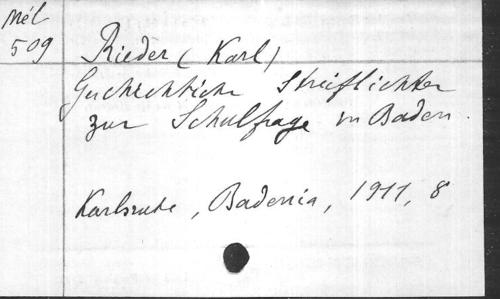 Mél
509
Rieder (Karl)
Geschichtliche Streiflichter
zur Schulfrage in Baden.
Karlsruhe, Badenia, 1911, 8